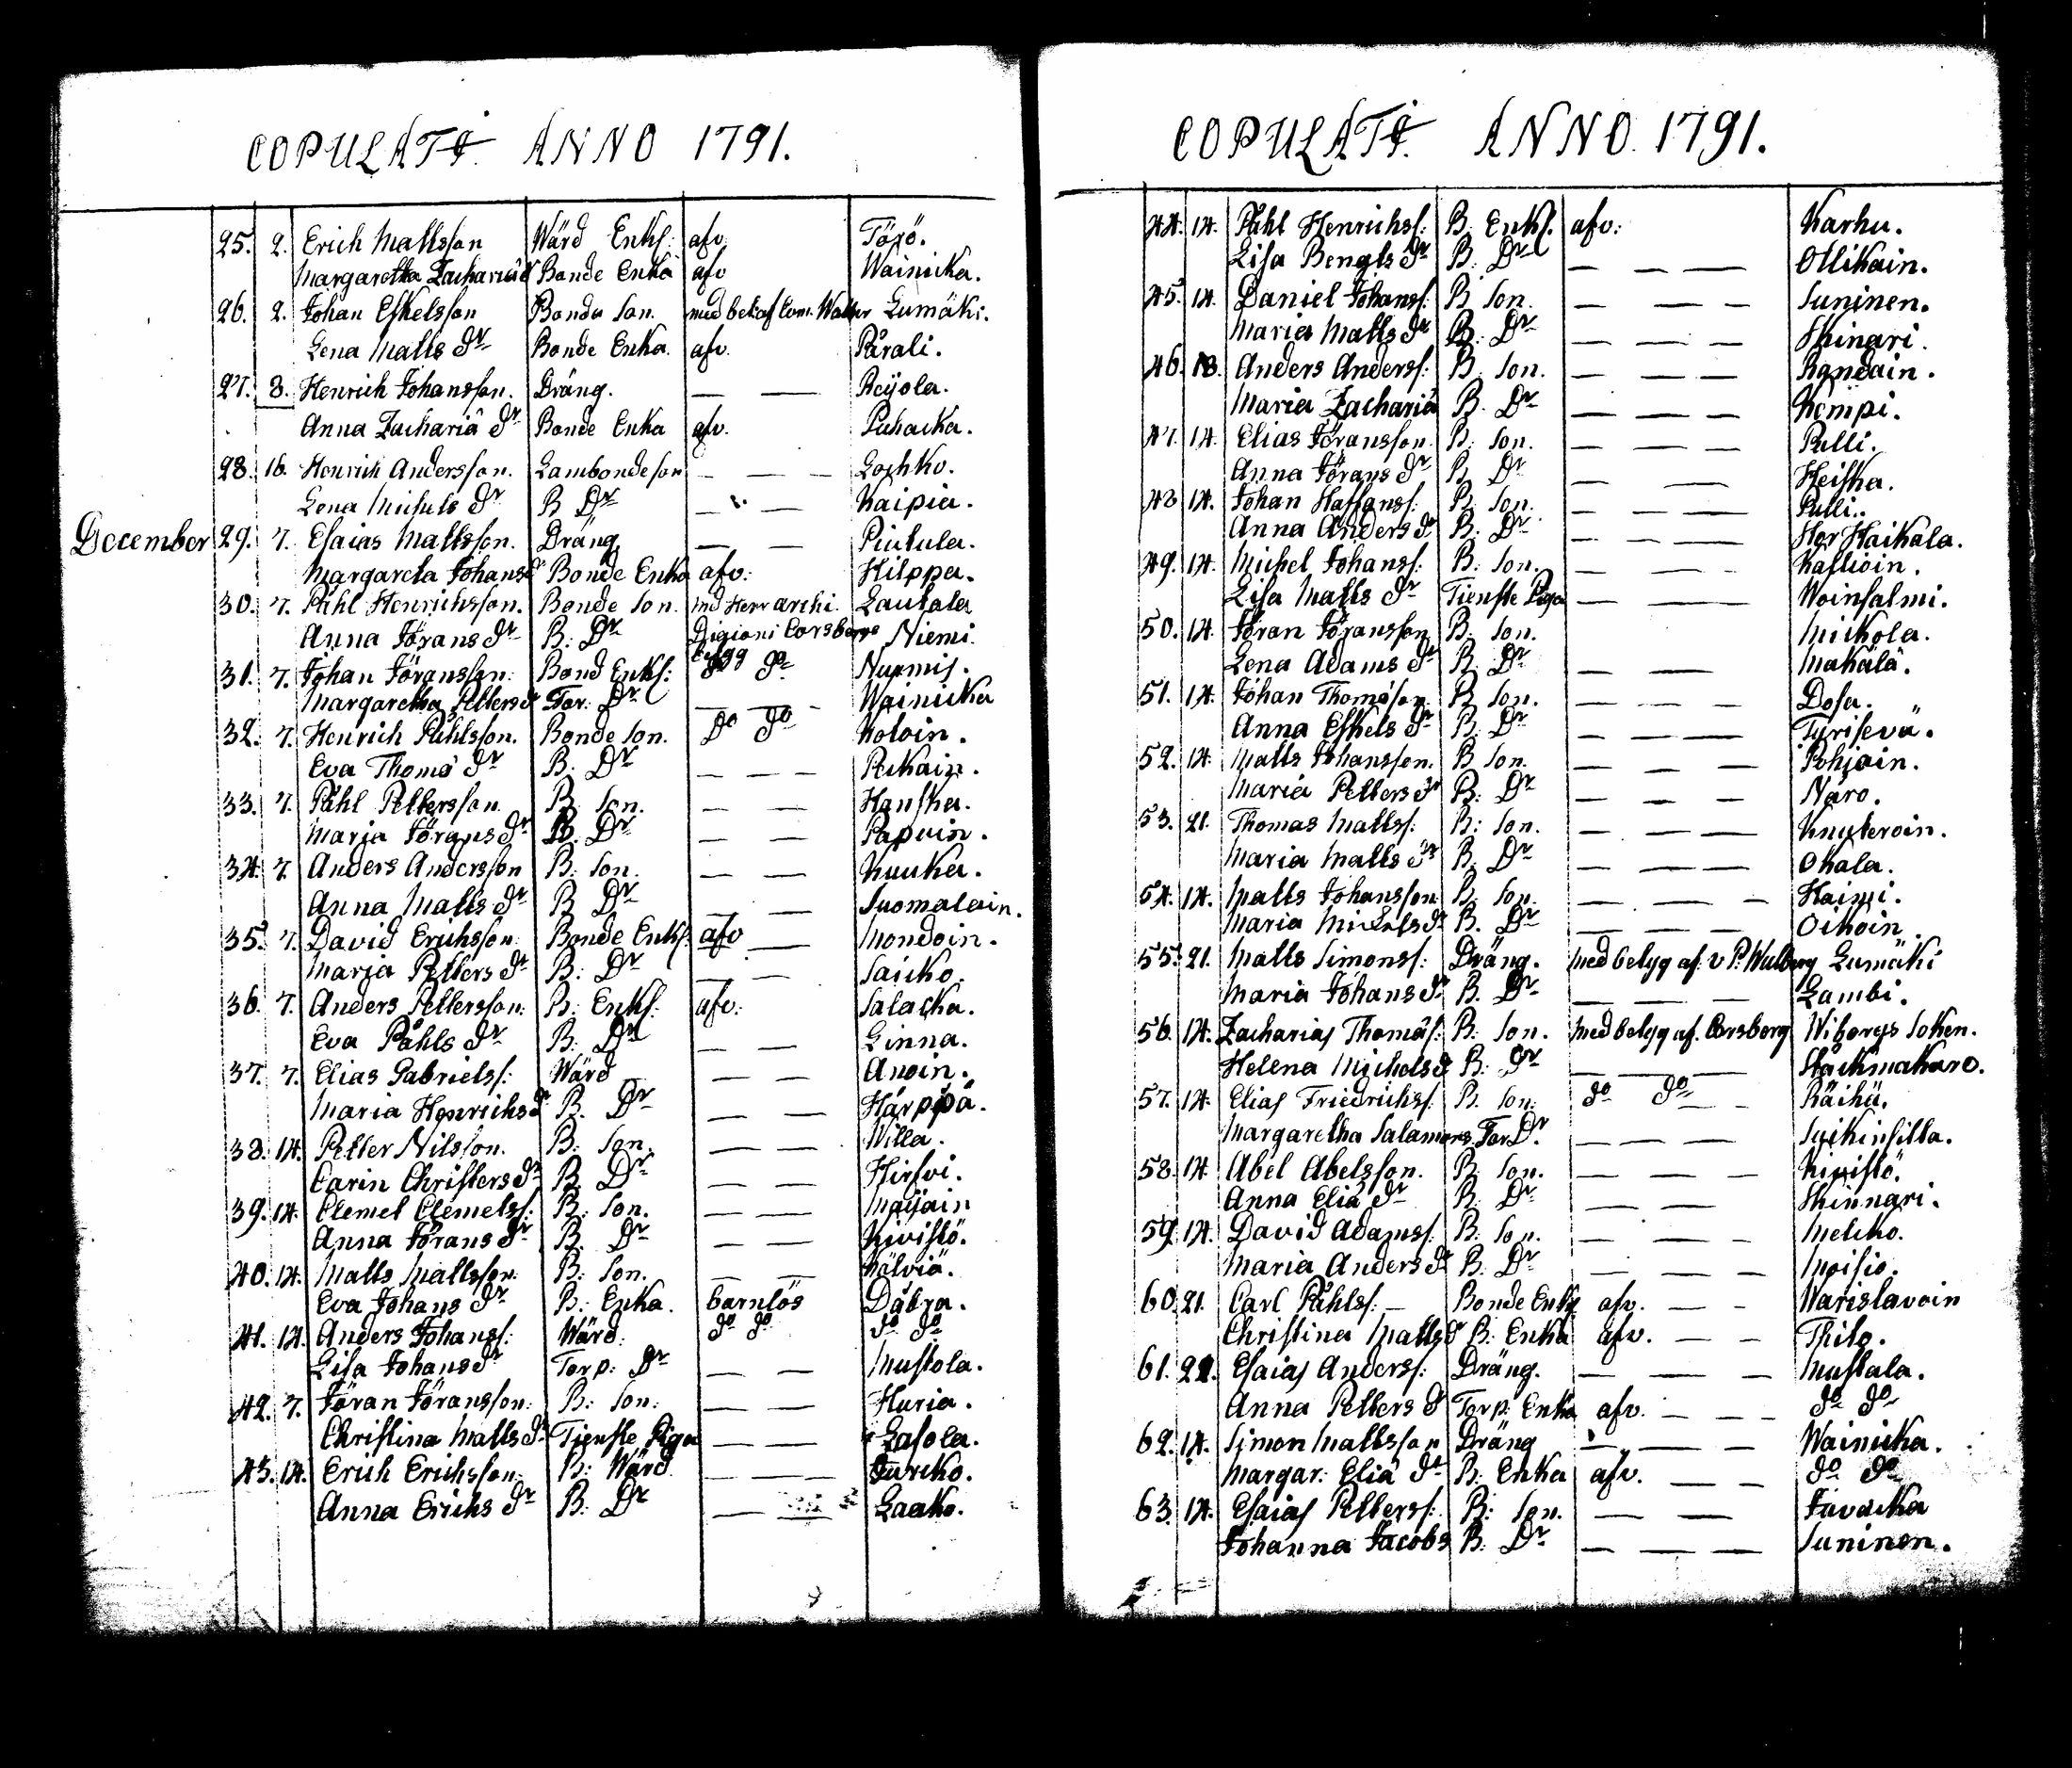 COPULATI. ANNO 1791.
25. 2. Erich Mattsson Wärd Enkl: afv. Törö.
Margaretha Zachariæ dr Bonde Enka afv Wainicka.
26. 2. Johan Eskelsson Bonde Son. med bet: af Com: Lumäki.
Lena Matts dr Bonde Enka. afv. Pärali.
27. 8. Henrich Johansson. Dräng. — — Reijola.
Anna Zachariä dr Bonde Enka afv. Puhacka.
28. 16. Henrich Andersson. Lambondeson — — — Lochko.
Lena Michels dr B Dr — — Kaipia.
December 29. 7. Esaias Mattsson. Dräng — — Piutula.
Margareta Johans d Bonde Enka afv: Hilppa.
30. 7. Påhl Henrichsson. Bonde Son. med Herr archi. Lautala
Anna Jörans dr B: Dr Digioni Corsbergs Niemi.
belyg
31. 7. Johan Jöransson. Bond Enkl: do do Nurmis.
Margaretha Petters d Tor: Dr — — - Wainicka
32. 7. Henrich Påhlsson. Bonde Son. Do do Kotoin.
Eva Thomæ dr B: Dr — — — Pekain.
33. 7. Påhl Pettersson B: Son. — — Hanska.
Maria Jörans dr B. Dr — — Papoin.
34. 7. Anders Andersson B: Son. — — Kuuka.
Anna Matts dr B Dr — — Suomalain.
35. 7. David Erichsson Bonde Enkl. afv — Mondoin.
Maria Petters dr B: Dr — — Saicko.
36. 7. Anders Pettersson: B: Enkl: afv: Salacka.
Eva Påhls dr B: Dr — — Linna.
37. 7. Elias Gabrielss: Wärd — — Anoin.
Maria Henrichs dr B. Dr — — Härppä.
38. 14. Petter Nilsson. B: Son. — — Willa.
Carin Christers dr B. Dr — — Hirfvi.
39. 14. Clemet Clemetss: B: Son. — — Maijain
Anna Jörans dr B. Dr — — Kivistö.
40. 14. Matts Mattsson: B: Son. — — Kälviä.
Eva Johans dr B: Enka. barnlös Däbra.
41. 14. Anders Johanss: Wärd. do do do do
Lisa Johans dr Torp: Dr — — Mustola.
42. 7. Jöran Jöransson: B: Son: — — Huria.
Christina Matts dr Tienste Piga — — Lasola.
43. 14. Erich Erichsson: B: Wärd. — — — Turcko.
Anna Erichs dr B: Dr — — Laako.
COPULATI. ANNO. 1791.
44. 14. Påhl Henrichss: B: Enkl. afv: Karhu.
Lisa Bengts dr B: Dr — — — Ollikain.
45. 14. Daniel Johanss: B Son. — — — Suninen.
Maria Matts dr B: Dr — — — Skinari.
46. 18. Anders Anderss: B: Son. — — — Randain.
Maria Zachariä B: Dr — — — Kempi.
47. 14. Elias Jöransson. B: Son. — — — Pulli.
Anna Jörans dr B Dr — — Heiska.
48 14. Johan Staffanss: B: Son. — — — Pulli.
Anna Anders dr B: Dr — — — Hor Haikala.
49. 14. Michel Johanss: B: Son. — — — Kallioin.
Lisa Matts dr Tienste Piga — — — Woinsalmi.
50. 14. Jöran Jöransson B: Son. Mickola.
Lena Adams dr B: Dr — — Makälä.
51. 14. Johan Thomæson B Son. — — — Dosa.
Anna Eskels dr B: Dr — — — Tyrisevä.
52. 14. Matts Johansson. B Son. — — — Pohjoin.
Maria Petters dr B: Dr — — — Näro.
53. 21. Thomas Mattss: B: Son. — — — Knuteroin.
Maria Matts dr B. Dr — — — Okala.
54. 14. Matts Johansson B Son. — — — Haimi.
Maria Michels dr B. Dr — — — Oikoin
55. 21. Matts Simonss: Dräng. med belyg af: v P: Walberg Lumäki
Maria Johans dr B. Dr — — — Lambi.
56. 14. Zacharias Thomäs: B: Son. med belyg af. Corsberg Wiborgs Soken.
Helena Michels d B: Dr — — — Stäckmakare.
57. 14. Elias Friedrichss: B. Son: do do Räihä.
Margaretha Salamons Tor Dr. — — — Suikinsilla.
58. 14 Abel Abelsson. B: Son. — — — Kivistö.
Anna Eliä dr B: Dr — — — Skinnari.
59. 14. David Adamss: B: Son. — — — Melcko.
Maria Anders dr B: Dr — — — Moisio.
60. 21. Carl Påhlss: — Bonde Enkl afv. — — Warislavoin
Christina Matts dr B: Enka afv. — — Thilo.
61. 21. Esaias Anderss: Dräng. — — — Mustala.
Anna Petters d Torp: Enka afv. — — — do do
62. 14. Simon Mattsson Dräng — — — Wainicka.
Margar: Eliä dr B: Enka afv. — — do do
63. 14. Esaias Petterss: B: Son. — — Tavacka
Johanna Jacobs B: Dr — — — Suninen.